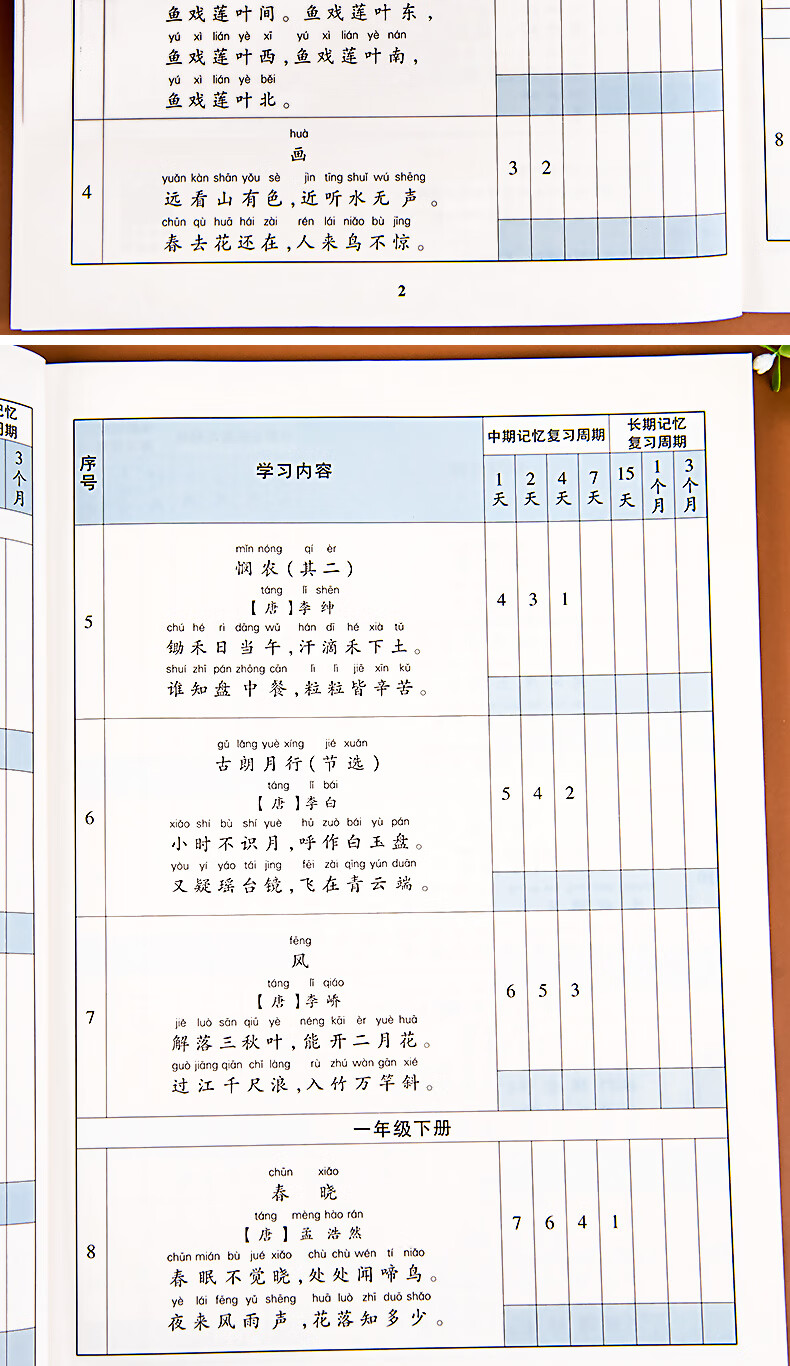 鱼戏莲叶间。鱼戏莲叶东，
yú xì lián yè xī yú xì lián yè nán
鱼戏莲叶西，鱼戏莲叶南，
yú xì lián yè běi
鱼戏莲叶北。
huà
画
4
yuǎn kàn shān yǒu sè jìn tīng shuǐ wú shēng
远看山有色，近听水无声。
chūn qù huā hái zài rén lái niǎo bù jīng
春去花还在，人来鸟不惊。
3 2
8
2
记忆
周期
3个月
序号
学习内容
中期记忆复习周期
长期记忆
复习周期
1天 2天 4天 7天 15天 1个月 3个月
5
mǐn nóng qí èr
悯农（其二）
táng lǐ shēn
【唐】李绅
chú hé rì dāng wǔ hàn dī hé xià tǔ
锄禾日当午，汗滴禾下土。
shuí zhī pán zhōng cān lì lì jiē xīn kǔ
谁知盘中餐，粒粒皆辛苦。
4 3 1
6
gǔ lǎng yuè xíng jié xuǎn
古朗月行（节选）
táng lǐ bái
【唐】李白
xiǎo shí bù shí yuè hū zuò bái yù pán
小时不识月，呼作白玉盘。
yòu yí yáo tái jìng fēi zài qīng yún duān
又疑瑶台镜，飞在青云端。
5 4 2
7
fēng
风
táng lǐ qiáo
【唐】李峤
jiě luò sān qiū yè néng kāi èr yuè huā
解落三秋叶，能开二月花。
guò jiāng qiān chǐ làng rù zhú wàn gān xié
过江千尺浪，入竹万竿斜。
6 5 3
一年级下册
8
chūn xiǎo
春晓
táng mèng hào rán
【唐】孟浩然
chūn mián bù jué xiǎo chù chù wén tí niǎo
春眠不觉晓，处处闻啼鸟。
yè lái fēng yǔ shēng huā luò zhī duō shǎo
夜来风雨声，花落知多少。
7 6 4 1